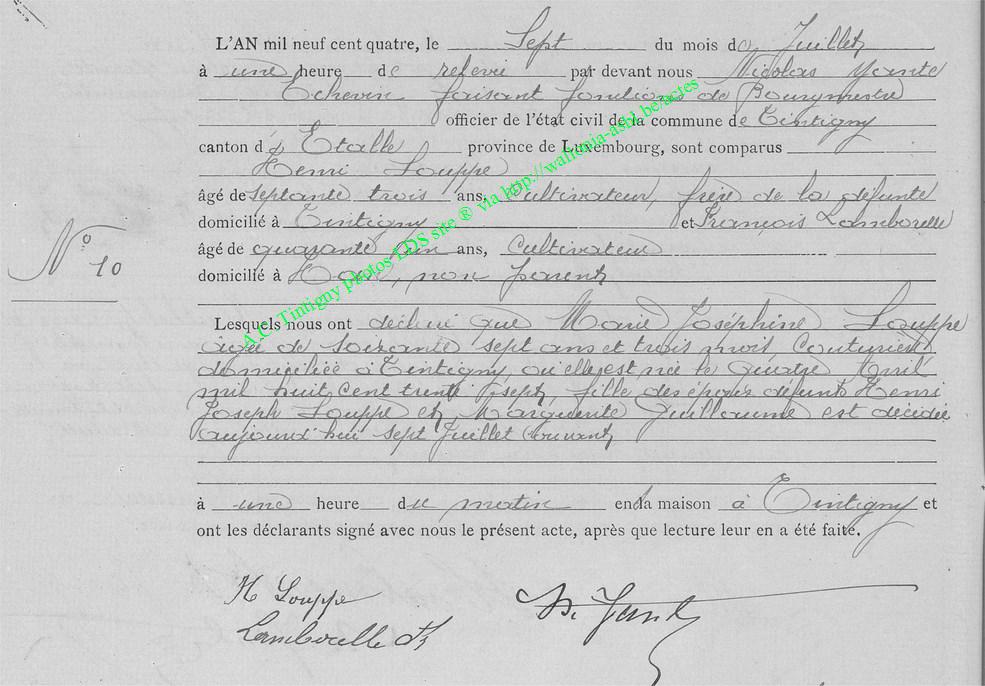 L'AN mil neuf cent quatre, le Sept du mois de Juillet
à une heure de relevée par devant nous Nicolas
Echevin faisant fonctions de Bourgmestre
officier de l'état civil de la commune de Tintigny
canton d' Etalle province de Luxembourg, sont comparus
Henri Louppe
âgé de septante trois ans, Cultivateur, frère de la défunte
domicilié à Tintigny et François Lamborelle
âgé de quarante un ans, Cultivateur
domicilié à non parent
N° 10
Lesquels nous ont déclaré que Marie Josephine Louppe
âgée de soixante sept ans et trois mois, Couturière
domiciliée à Tintigny, où elle est née le quatre Avril
mil huit cent trente sept, fille des époux défunts Henri
Joseph Louppe et Marguerite Guillaume est décédée
aujourd'hui sept Juillet courant
à une heure du matin en la maison à Tintigny et
ont les déclarants signé avec nous le présent acte, après que lecture leur en a été faite.
H Louppe
Lamborelle
A.C. Tintigny photos LDS site ® via http://wallonia-asbl.be/actes